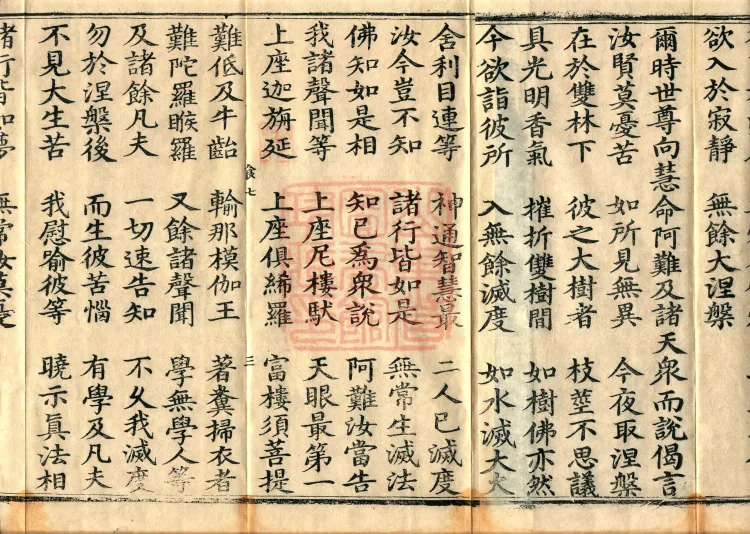 欲入於寂靜　無餘大涅槃
爾時世尊向慧命阿難及諸天眾而說偈言
汝賢莫憂苦　如所見無異　今夜取涅槃
在於雙林下　彼之大樹者　枝莖不思議
具光明香氣　摧折雙樹間　如樹佛亦然
今欲詣彼所　入無餘滅度　如水滅大火
舍利目連等　神通智慧最　二人已滅度
汝今豈不知　諸行皆如是　無常生滅法
佛知如是相　知已為眾說　阿難汝當告
我諸聲聞等　上座尼樓馱　天眼最第一
上座迦旃延　上座俱絺羅　富樓須菩提
食七　三
難低及牛齝　輸那模伽王　著糞掃衣者
難陀羅睺羅　又餘諸聲聞　學無學人等
及諸餘凡夫　一切速告知　不久我滅度
勿於涅槃後　而生彼苦惱　有學及凡夫
不見大生苦　我慰喻彼等　曉示真法相
諸行皆如夢　無常汝莫憂